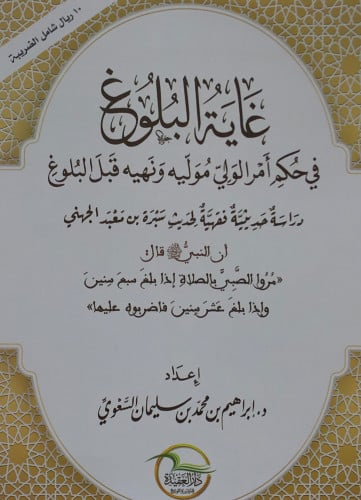 ١٠ ريال شامل الضريبة
غَايَةُ البُلُوغ
في حُكمِ أمرِ الوَليِّ مُوَلِّيه وَنَهيه قَبلَ البُلُوغ
دِرَاسَةٌ حَدِيثِيَّةٌ فِقهِيَّةٌ لِحَدِيثِ سَبْرَةَ بنِ مَعْبَد الجُهَنِي
أن النبيَّ ﷺ قال
«مُرُوا الصَّبِيَّ بِالصَّلاةِ إِذَا بلغَ سبعَ سِنِينَ
وإذا بلغَ عَشْرَ سِنِينَ فاضرِبُوه عليها»
إعدَاد
د. إبراهيم بن محمد بن سليمان السَّعْوِيّ
دار العقيدة